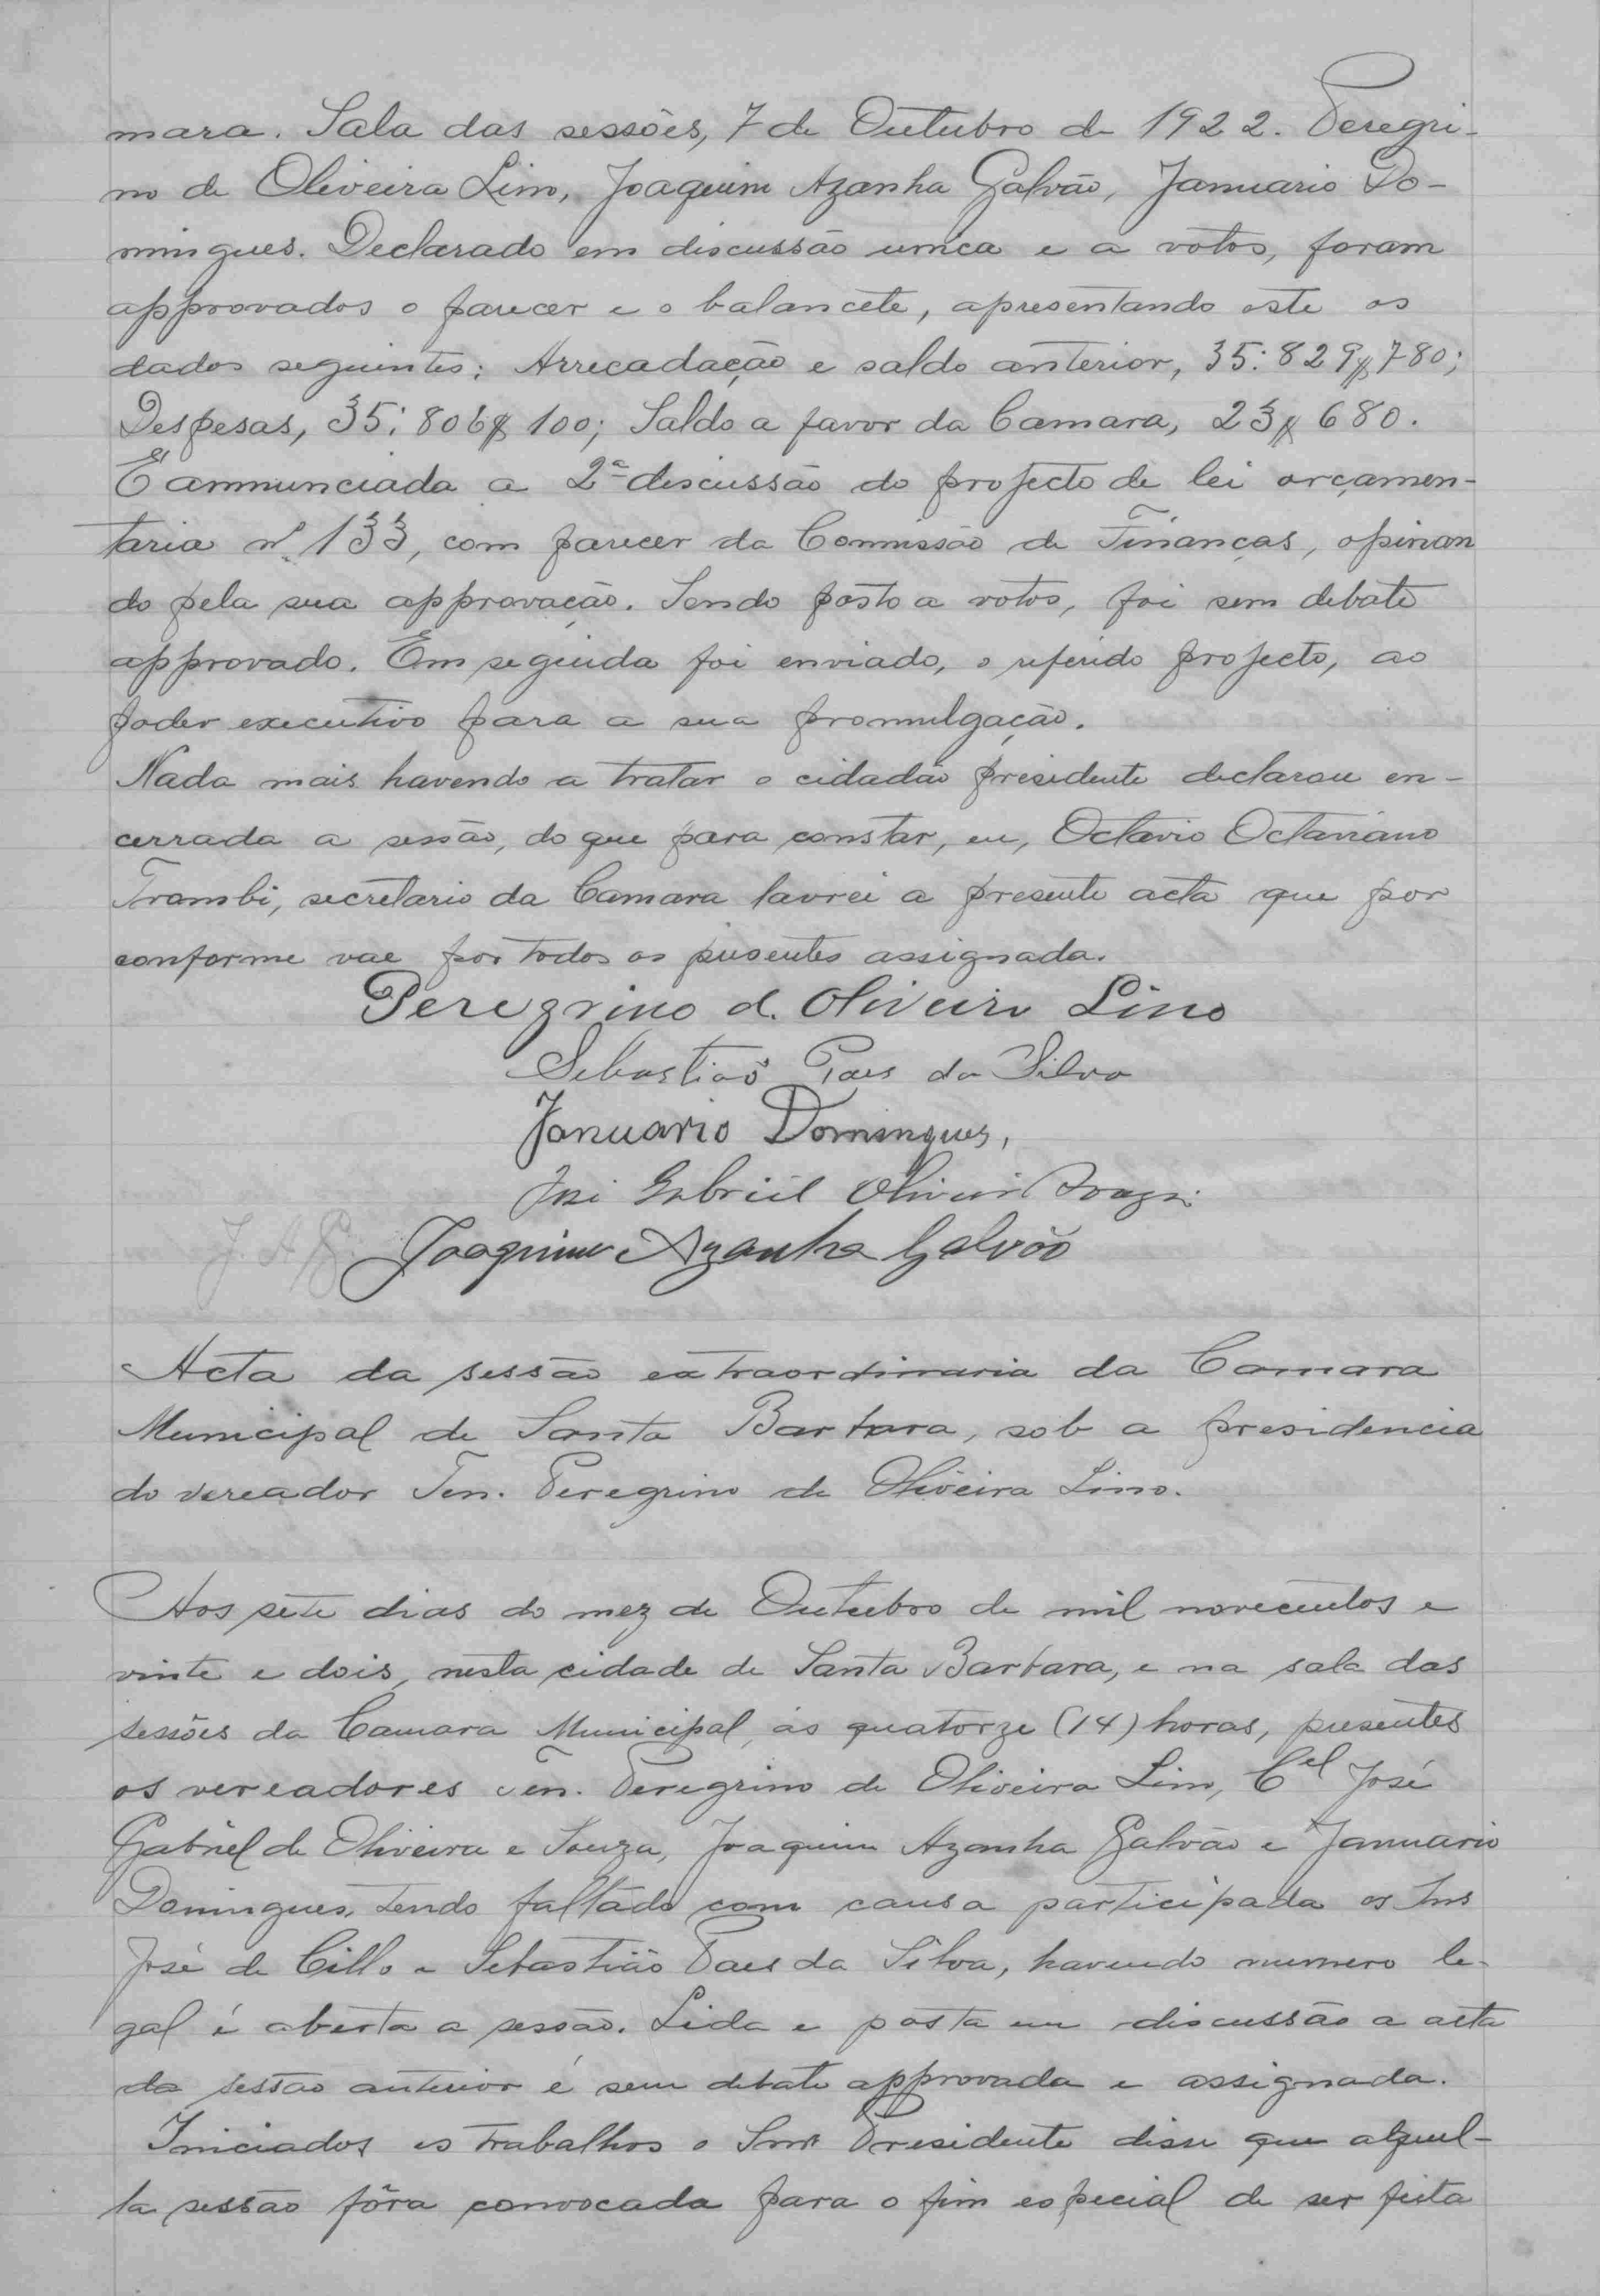 mara. Sala das sessões, 7 de Outubro de 1922. Peregri-
no de Oliveira Lino, Joaquim Azanha Galvão, Januario Do-
mingues. Declarado em discussão unica e a votos, foram
approvados o parecer e o balancete, apresentando este os
dados seguintes: Arrecadação e saldo anterior, 35:829$780;
Despesas, 35:806$100; Saldo a favor da Camara, 23$680.
E' annunciada a 2ª discussão do projecto de lei orçamen-
taria nº 133, com parecer da Commissão de Finanças, opinan
do pela sua approvação. Sendo posto a votos, foi sem debate
approvado. Em seguida foi enviado, o referido projecto, ao
poder executivo para a sua promulgação.
Nada mais havendo a tratar o cidadão presidente declarou en-
cerrada a sessão, do que para constar, eu, Octavio Octaviano
Trambi, secretario da Camara lavrei a presente acta que por
conforme vae por todos os presentes assignada.
Peregrino d. Oliveira Lino
Sebastião Paes da Silva
Januario Domingues,
José Gabriel Oliveira Souza
J. A. G. Joaquim Azanha Galvão
Acta da sessão extraordinaria da Camara
Municipal de Santa Barbara, sob a presidencia
do vereador Ten. Peregrino de Oliveira Lino.
Aos sete dias do mez de Outubro de mil novecentos e
vinte e dois, nesta cidade de Santa Barbara, e na sala das
sessões da Camara Municipal, ás quatorze (14) horas, presentes
os vereadores Ten. Peregrino de Oliveira Lino, Cel José
Gabriel de Oliveira e Souza, Joaquim Azanha Galvão e Januario
Domingues, tendo faltado com causa participada os Snrs
José de Cillo e Sebastião Paes da Silva, havendo numero le-
gal é aberta a sessão. Lida e posta em discussão a acta
da sessão anterior é sem debate approvada e assignada.
Iniciados os trabalhos o Snr Presidente disse que aquel-
la sessão fôra convocada para o fim especial de ser feita